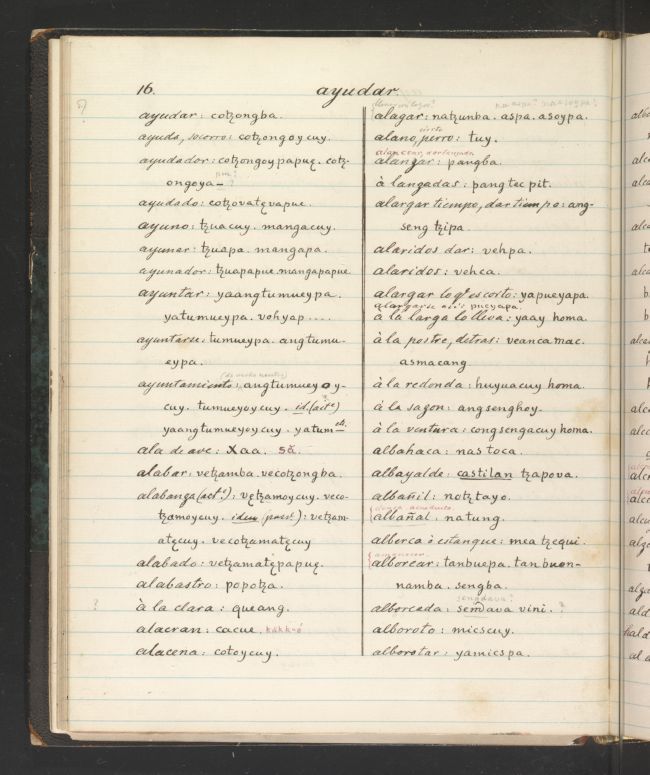 16.
ayudar.
ayudar: cotzongba.
ayuda, socorro: cotzongoycuy.
ayudador: cotzongoypapuę. cotz-
ongoya
ayudado: cotzovatęvapue.
ayuno: tzuacuy. mangacuy.
ayunar: tzuapa. mangapa.
ayunador: tzuapapue. mangapapue
ayuntar: yaangtumueypa.
yatumueypa. vohyap....
ayuntarse: tumueypa. angtumu-
eypa.
ayuntamiento: angtumueyoy-
cuy. tumueyoycuy. id. (actę)
yaangtumueyoycuy. yatum
ala de ave: xaa. să.
alabar: vetzamba. vecotzongba.
alabanza (act.): vętzamoycuy. veco-
tzamoycuy. idem (pass.): vetzam-
atęcuy. vecotzamatęcuy
alabado: vetzamatępapuę.
alabastro: popotza.
? à la clara: queang.
alacran: cacue. kăkkuó
alacena: cotoycuy.
alagar: natzunba. aspa. asoypa.
alano, perro: tuy.
alançear,
alançar: pangba.
à lançadas: pangtecpit.
alargar tiempo, dar tiempo: ang-
seng tzipa.
alaridos dar: vehpa.
alaridos: vehca.
alargar lo qe es corto: yapueyapa.
alargarse asi: pueyapa.
à la larga lo lleva: yaay homa.
à la postre, detras: veanca mac.
asmacang
à la redonda: huyuacuy homa.
à la sazon: angsenghoy.
à la ventura: congsengacuy homa.
albahaca: nastoca.
albayalde: castilan tzapova.
albañil: notztayo.
albañal: natung.
alberca è estanque: mea tzequi.
amanecer.
alborear: tanbuepa. tanbuen-
namba. sengba.
sengdava?
alborada: sendava vini. ?
alboroto: micscuy.
alborotar: yamicspa.